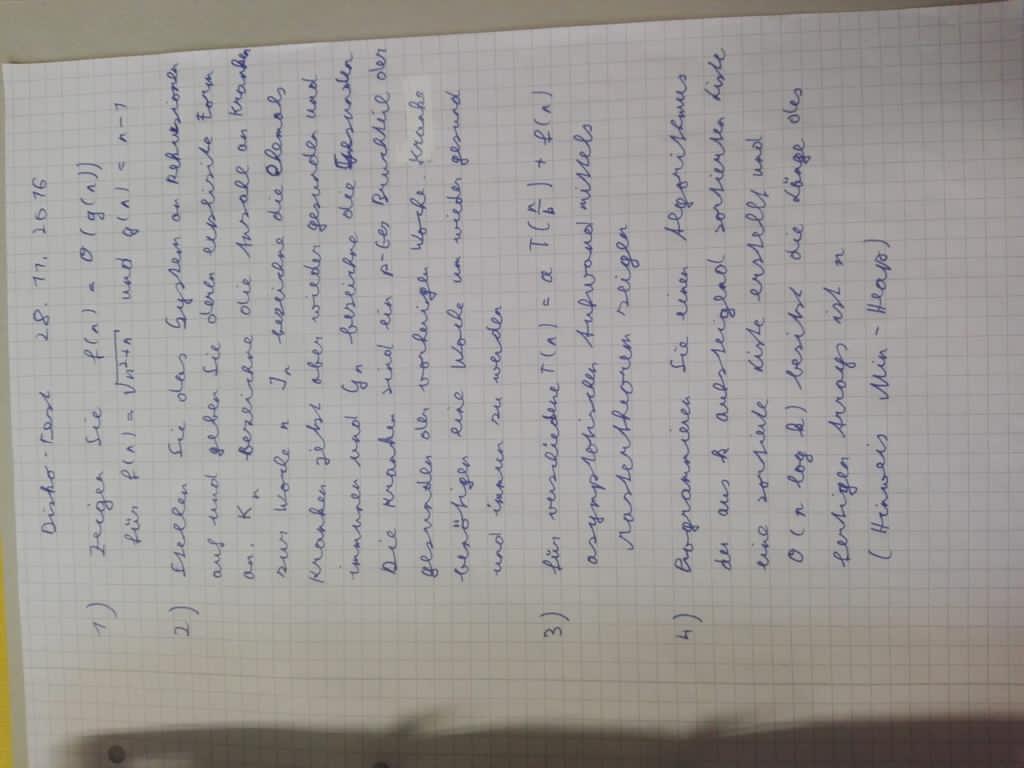 Disko-Test 28. 11. 2016
1) Zeigen Sie f(n) = O(g(n))
für f(n) = √n²+n und g(n) = n-1
2) Stellen Sie das System an Rekursionen
auf und geben Sie deren explizite Form
an. Kn bezeichne die Anzahl an Kranken
zur Woche n In bezeichne die Elemals
Kranken jetzt aber wieder gesunden und
immunen und Gn bezeichne die Gesunden
Die Kranken sind ein p-tes Bruchteil der
gesunden der vorherigen Woche. Kranke
benötigen eine Woche um wieder gesund
und immun zu werden
3) für verschiedene T(n) = a T(n/b) + f(n)
asymptotischen Aufwand mittels
Mastertheorem zeigen
4) Programmieren Sie einen Algorithmus
der aus k aufsteigend sortierten Liste
eine sortierte Liste erstellt und
O(n log k) besitzt die Länge des
fertigen Arrays ist n
(Hinweis Min-Heap)